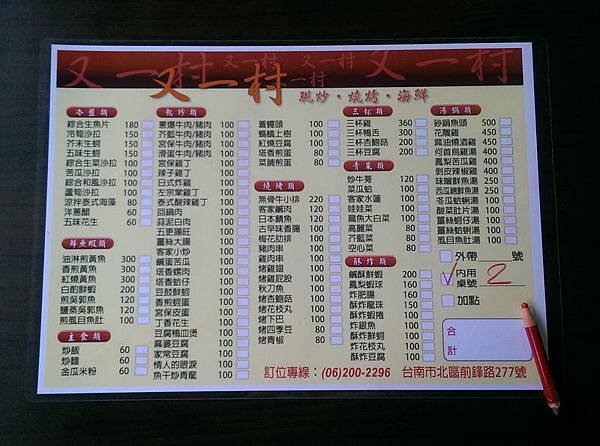 又一村
又一村
又一村
又一村
一村
又一村
現炒‧燒烤‧海鮮
冷盤類
綜合生魚片 180
冷筍沙拉 130
芥末生蚵 130
五味生蚵 130
綜合生菜沙拉 100
苦瓜沙拉 100
綜合和風沙拉 100
蘆筍沙拉 100
涼拌泰式海藻 80
洋蔥醋 60
五味花生 60
鮮魚蝦類
油淋煎黃魚 300
香煎黃魚 300
紅燒黃魚 300
白酌鮮蝦 200
煎吳郭魚 150
鹽蒸吳郭魚 150
煎虱目魚肚 100
主食類
炒飯 60
炒麵 60
金瓜米粉 60
熱炒類
蔥爆牛肉/豬肉 100
芥藍牛肉/豬肉 100
宮保牛肉/豬肉 100
滑蛋牛肉/豬肉 100
宮保雞丁 100
辣子雞丁 100
日式炸雞 100
左宗棠雞丁 100
泰式酸辣雞丁 100
回鍋肉 100
蒜泥白肉 100
五更腸旺 100
薑絲大腸 100
客家小炒 100
鹹蛋苦瓜 100
塔香螺肉 100
塔香蛤仔 100
豆豉鮮蚵 100
香煎蚵蛋 100
宮保皮蛋 100
丁香花生 100
豆腐鴨血煲 100
麻婆豆腐 100
家常豆腐 100
情人的眼淚 100
魚干炒青龍 100
蒼蠅頭 100
螞蟻上樹 100
紅燒豆腐 100
塔香煎蛋 80
菜脯煎蛋 80
燒烤類
無骨牛小排 220
客家鹹肉 120
日本鯖魚 120
古早味香腸 100
梅花肋排 100
豬肉串 100
雞肉串 100
烤雞翅 100
烤雞屁股 100
秋刀魚 100
烤杏鮑菇 100
烤花枝丸 100
烤下巴 100
烤四季豆 80
烤青椒 80
三杯類
三杯雞 360
三杯鴨舌 300
三杯杏鮑菇 200
三杯豆腐 200
青菜類
炒牛蒡 120
菜瓜蛤 100
客家水蓮 100
娃娃菜 100
扁魚大白菜 100
高麗菜 80
芥藍菜 80
空心菜 80
酥炸類
鹹酥鮮蝦 200
鳳梨蝦球 160
炸肥腸 160
酥炸龍珠 100
酥炸蝦捲 100
炸銀魚 100
酥炸鮮蚵 100
炸花枝丸 100
酥炸豆腐 100
湯鍋類
砂鍋魚頭 500
花雕雞 450
麻油燒酒雞 400
何首烏雞湯 400
鳳梨苦瓜雞 400
剝皮辣椒雞 400
味噌鮮魚湯 250
西瓜綿鮮魚湯 250
冬瓜蛤蜊湯 200
酸菜肚片湯 200
薑絲蚵仔湯 200
薑絲蛤蜊湯 200
虱目魚肚湯 200
外帶 號
內用
桌號 2
加點
合
計
訂位專線：(06)200-2296 台南市北區前鋒路277號